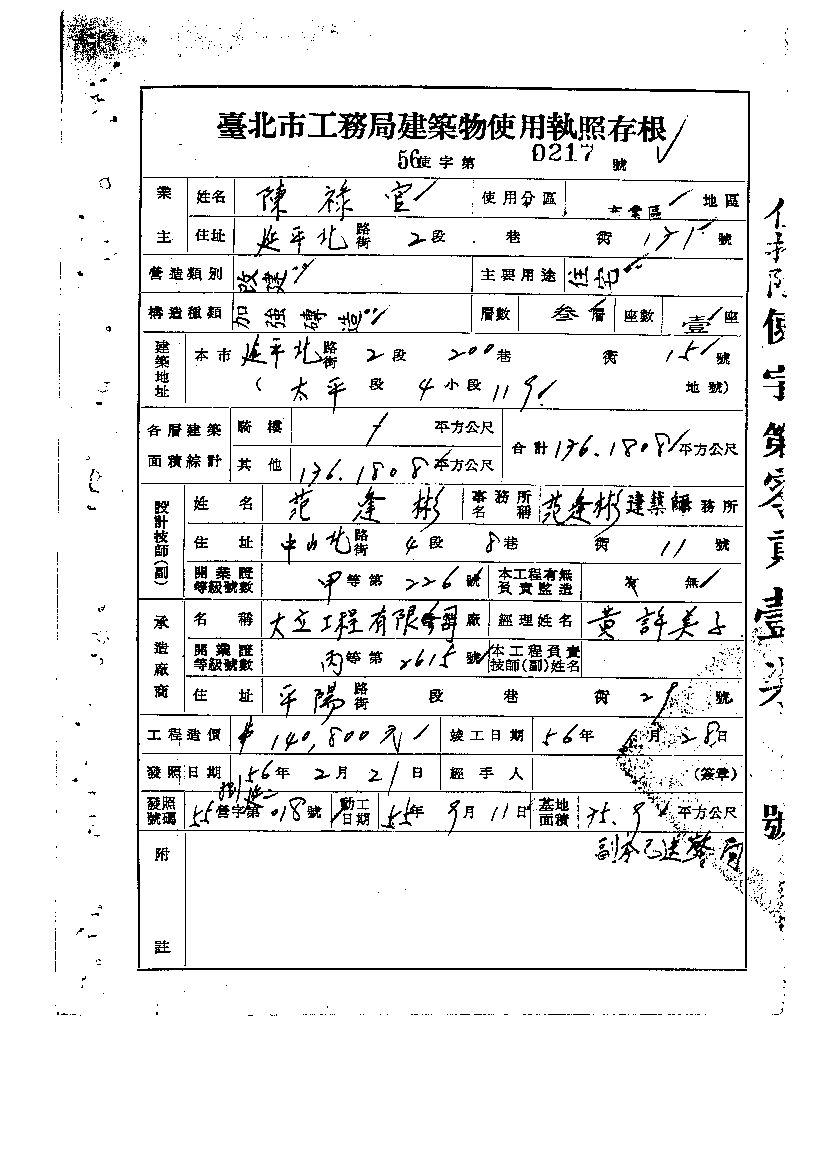 臺北市工務局建築物使用執照存根
56使字第 0217 號
業主 姓名 陳祿官 使用分區 商業區 地區
住址 延平北路街 2段 巷 街 171 號
營造類別 改建 主要用途 住宅
構造種類 加強磚造 層數 叁層 座數 壹座
建築地址 本市 延平北路街 2段 200巷 街 15 號
( 太平 段 4小段 119 地號)
各層建築面積綜計 騎樓 / 平方公尺 合計 176.1808 平方公尺
其他 176.1808 平方公尺
設計技師(副) 姓名 范逢彬 事務所名稱 范逢彬建築師 務所
住址 中山北路街 4段 8巷 街 11 號
開業證等級號數 甲等第 226 號 本工程有無負責監造 有 無
承造廠商 名稱 大立工程有限公司 廠 經理姓名 黃許美子
開業證等級號數 丙等第 2615 號 本工程負責技師(副)姓名
住址 平陽路街 段 巷 街 號
工程造價 $140,800元 竣工日期 56年 月 28日
發照日期 56年 2月 21日 經手人 (簽章)
發照號碼 55營字第 018號 動工日期 55年 9月 11日 基地面積 75.9 平方公尺
附註
副本已送警局
使字第零貳壹柒號